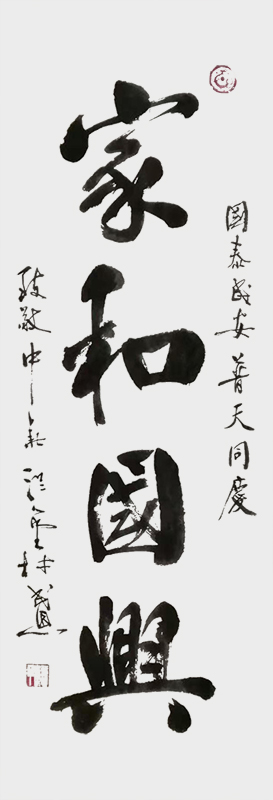 國泰民安普天同慶
家和國興
致敬中